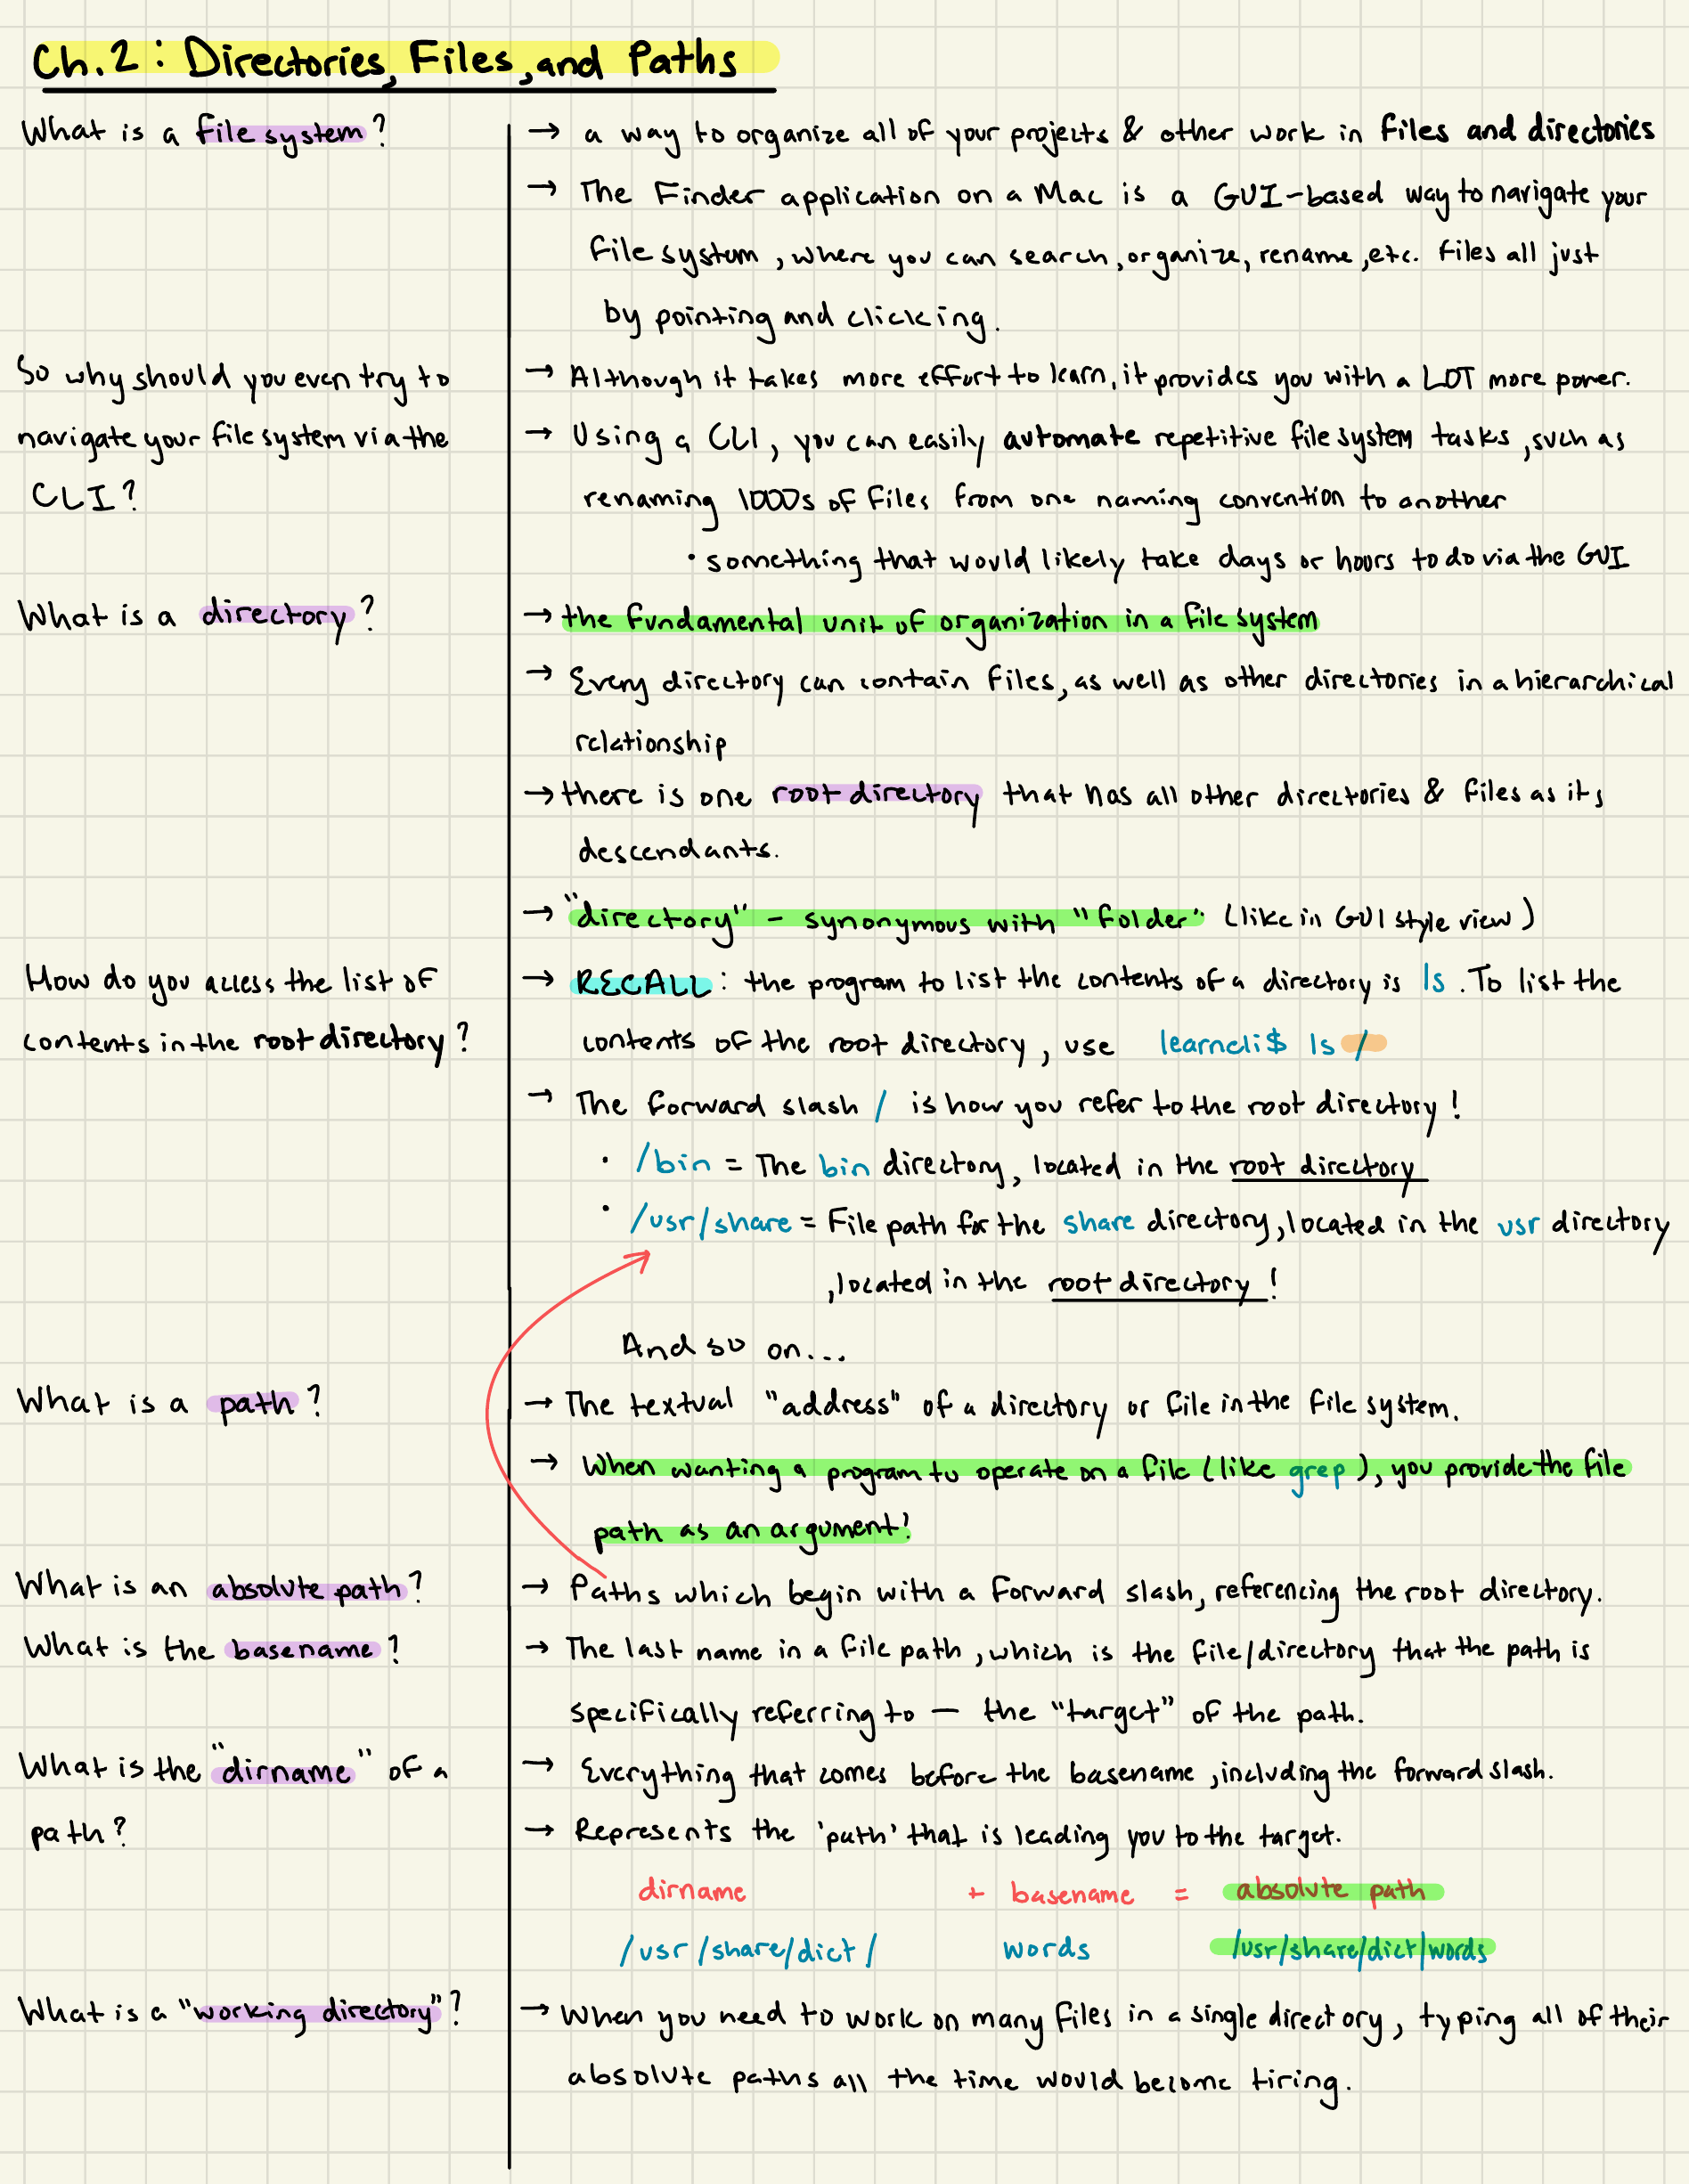 Ch.2: Directories, Files, and Paths
What is a file system?
→ a way to organize all of your projects & other work in files and directories
→ The Finder application on a Mac is a GUI-based way to navigate your
file system, where you can search, organize, rename, etc. files all just
by pointing and clicking.
So why should you even try to
navigate your file system via the
CLI?
→ Although it takes more effort to learn, it provides you with a LOT more power.
→ Using a CLI, you can easily automate repetitive file system tasks, such as
renaming 1000s of files from one naming convention to another
• something that would likely take days or hours to do via the GUI
What is a directory?
→ the fundamental unit of organization in a file system
→ Every directory can contain files, as well as other directories in a hierarchical
relationship
→ there is one root directory that has all other directories & files as its
descendants.
→ "directory" - synonymous with "folder" (like in GUI style view)
How do you access the list of
contents in the root directory?
→ RECALL: the program to list the contents of a directory is ls. To list the
contents of the root directory, use learncli$ ls /
→ The forward slash / is how you refer to the root directory!
• /bin = The bin directory, located in the root directory
• /usr/share = File path for the share directory, located in the usr directory
, located in the root directory!
And so on...
What is a path?
→ The textual "address" of a directory or file in the file system.
→ When wanting a program to operate on a file (like grep), you provide the file
path as an argument!
What is an absolute path?
→ Paths which begin with a forward slash, referencing the root directory.
What is the basename?
→ The last name in a file path, which is the file/directory that the path is
specifically referring to — the "target" of the path.
What is the "dirname" of a
path?
→ Everything that comes before the basename, including the forward slash.
→ Represents the 'path' that is leading you to the target.
dirname + basename = absolute path
/usr/share/dict/ words /usr/share/dict/words
What is a "working directory"?
→ When you need to work on many files in a single directory, typing all of their
absolute paths all the time would become tiring.